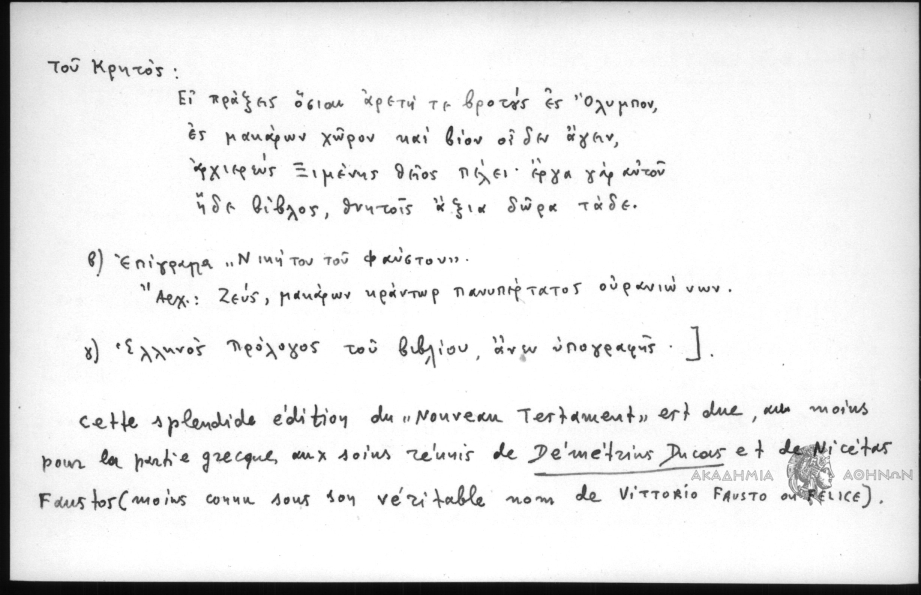 τοῦ Κρητός:
Εἰ πράξεις ὅσιαι ἀρετή τε βροτούς ἐς Ὄλυμπον,
ἐς μακάρων χῶρον καί βίον οἶδεν ἄγειν,
ἀρχιερεύς Ξιμένης θεῖος πέλει· ἔργα γάρ αὐτοῦ
ἥδε βίβλος, θνητοῖς ἄξια δῶρα τάδε.
β) Ἐπίγραμμα „Νικήτου τοῦ Φαύστου".
Ἀρχ.: Ζεύς, μακάρων κράντωρ πανυπέρτατος οὐρανιώνων.
γ) Ἑλληνός πρόλογος τοῦ βιβλίου, ἄνευ ὑπογραφῆς.].
Cette splendide édition du „Nouveau Testament" est due, au moins
pour la partie grecque, aux soins réunis de Démétrius Ducas et de Nicétas
Faustos (moins connu sous son véritable nom de VITTORIO FAUSTO ou FELICE).
ΑΚΑΔΗΜΙΑ ΑΘΗΝΩΝ